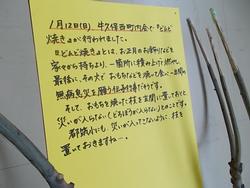 1月12日(日)、牛久保西町内会で『どんど
焼き』が行われました。
※どんど焼きとは、お正月のお飾りなどを
家々から持ちより、一箇所に積み上げて燃やし、
最後に、その火でおもちなどを焼いて食べ一年間の
無病息災を願う伝統行事だそうです。
そして、おもちを焼いた枝を玄関に置いておくと
災いが入らない(どろぼうが入らない)とのことです。
都筑小にも、災いが入ってこないように、枝を
置いておきますね…。